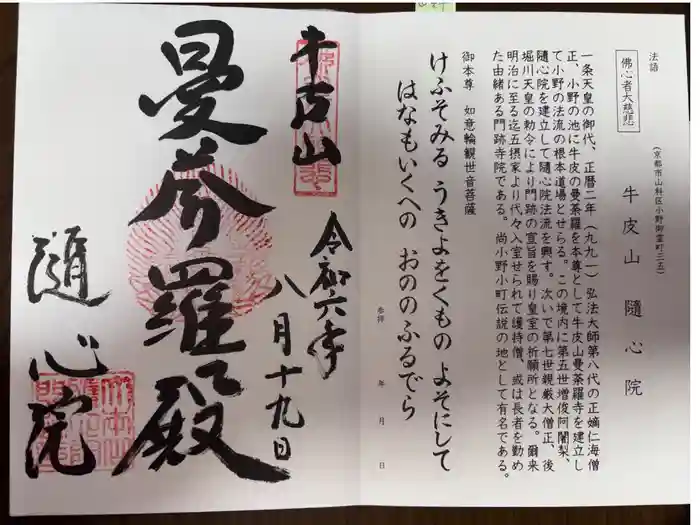 法語
佛心者大慈悲
(京都市山科区小野御霊町三五)
牛皮山 隨心院
一条天皇の御代、正暦二年(九九一)弘法大師第八代の正嫡仁海僧
正、小野の池に牛皮の曼荼羅を本尊として牛皮山曼荼羅寺を建立し
て小野の法流の根本道場とせらる。この境内に第五世増俊阿闍梨、
隨心院を建立して隨心院法流を興す。次いで第七世親厳大僧正、後
堀川天皇の勅令により門跡の宣旨を賜り皇室の祈願所となる。爾来
明治に至る迄五摂家より代々入室せられて護持僧、或は長者を勤め
た由緒ある門跡寺院である。尚小野小町伝説の地として有名である。
御本尊 如意輪観世音菩薩
けふそみる うきよをくもの よそにして
はなもいくへの おののふるでら
参拝 年 月 日
牛皮山
令和六年
八月十九日
曼荼羅殿
隨心院